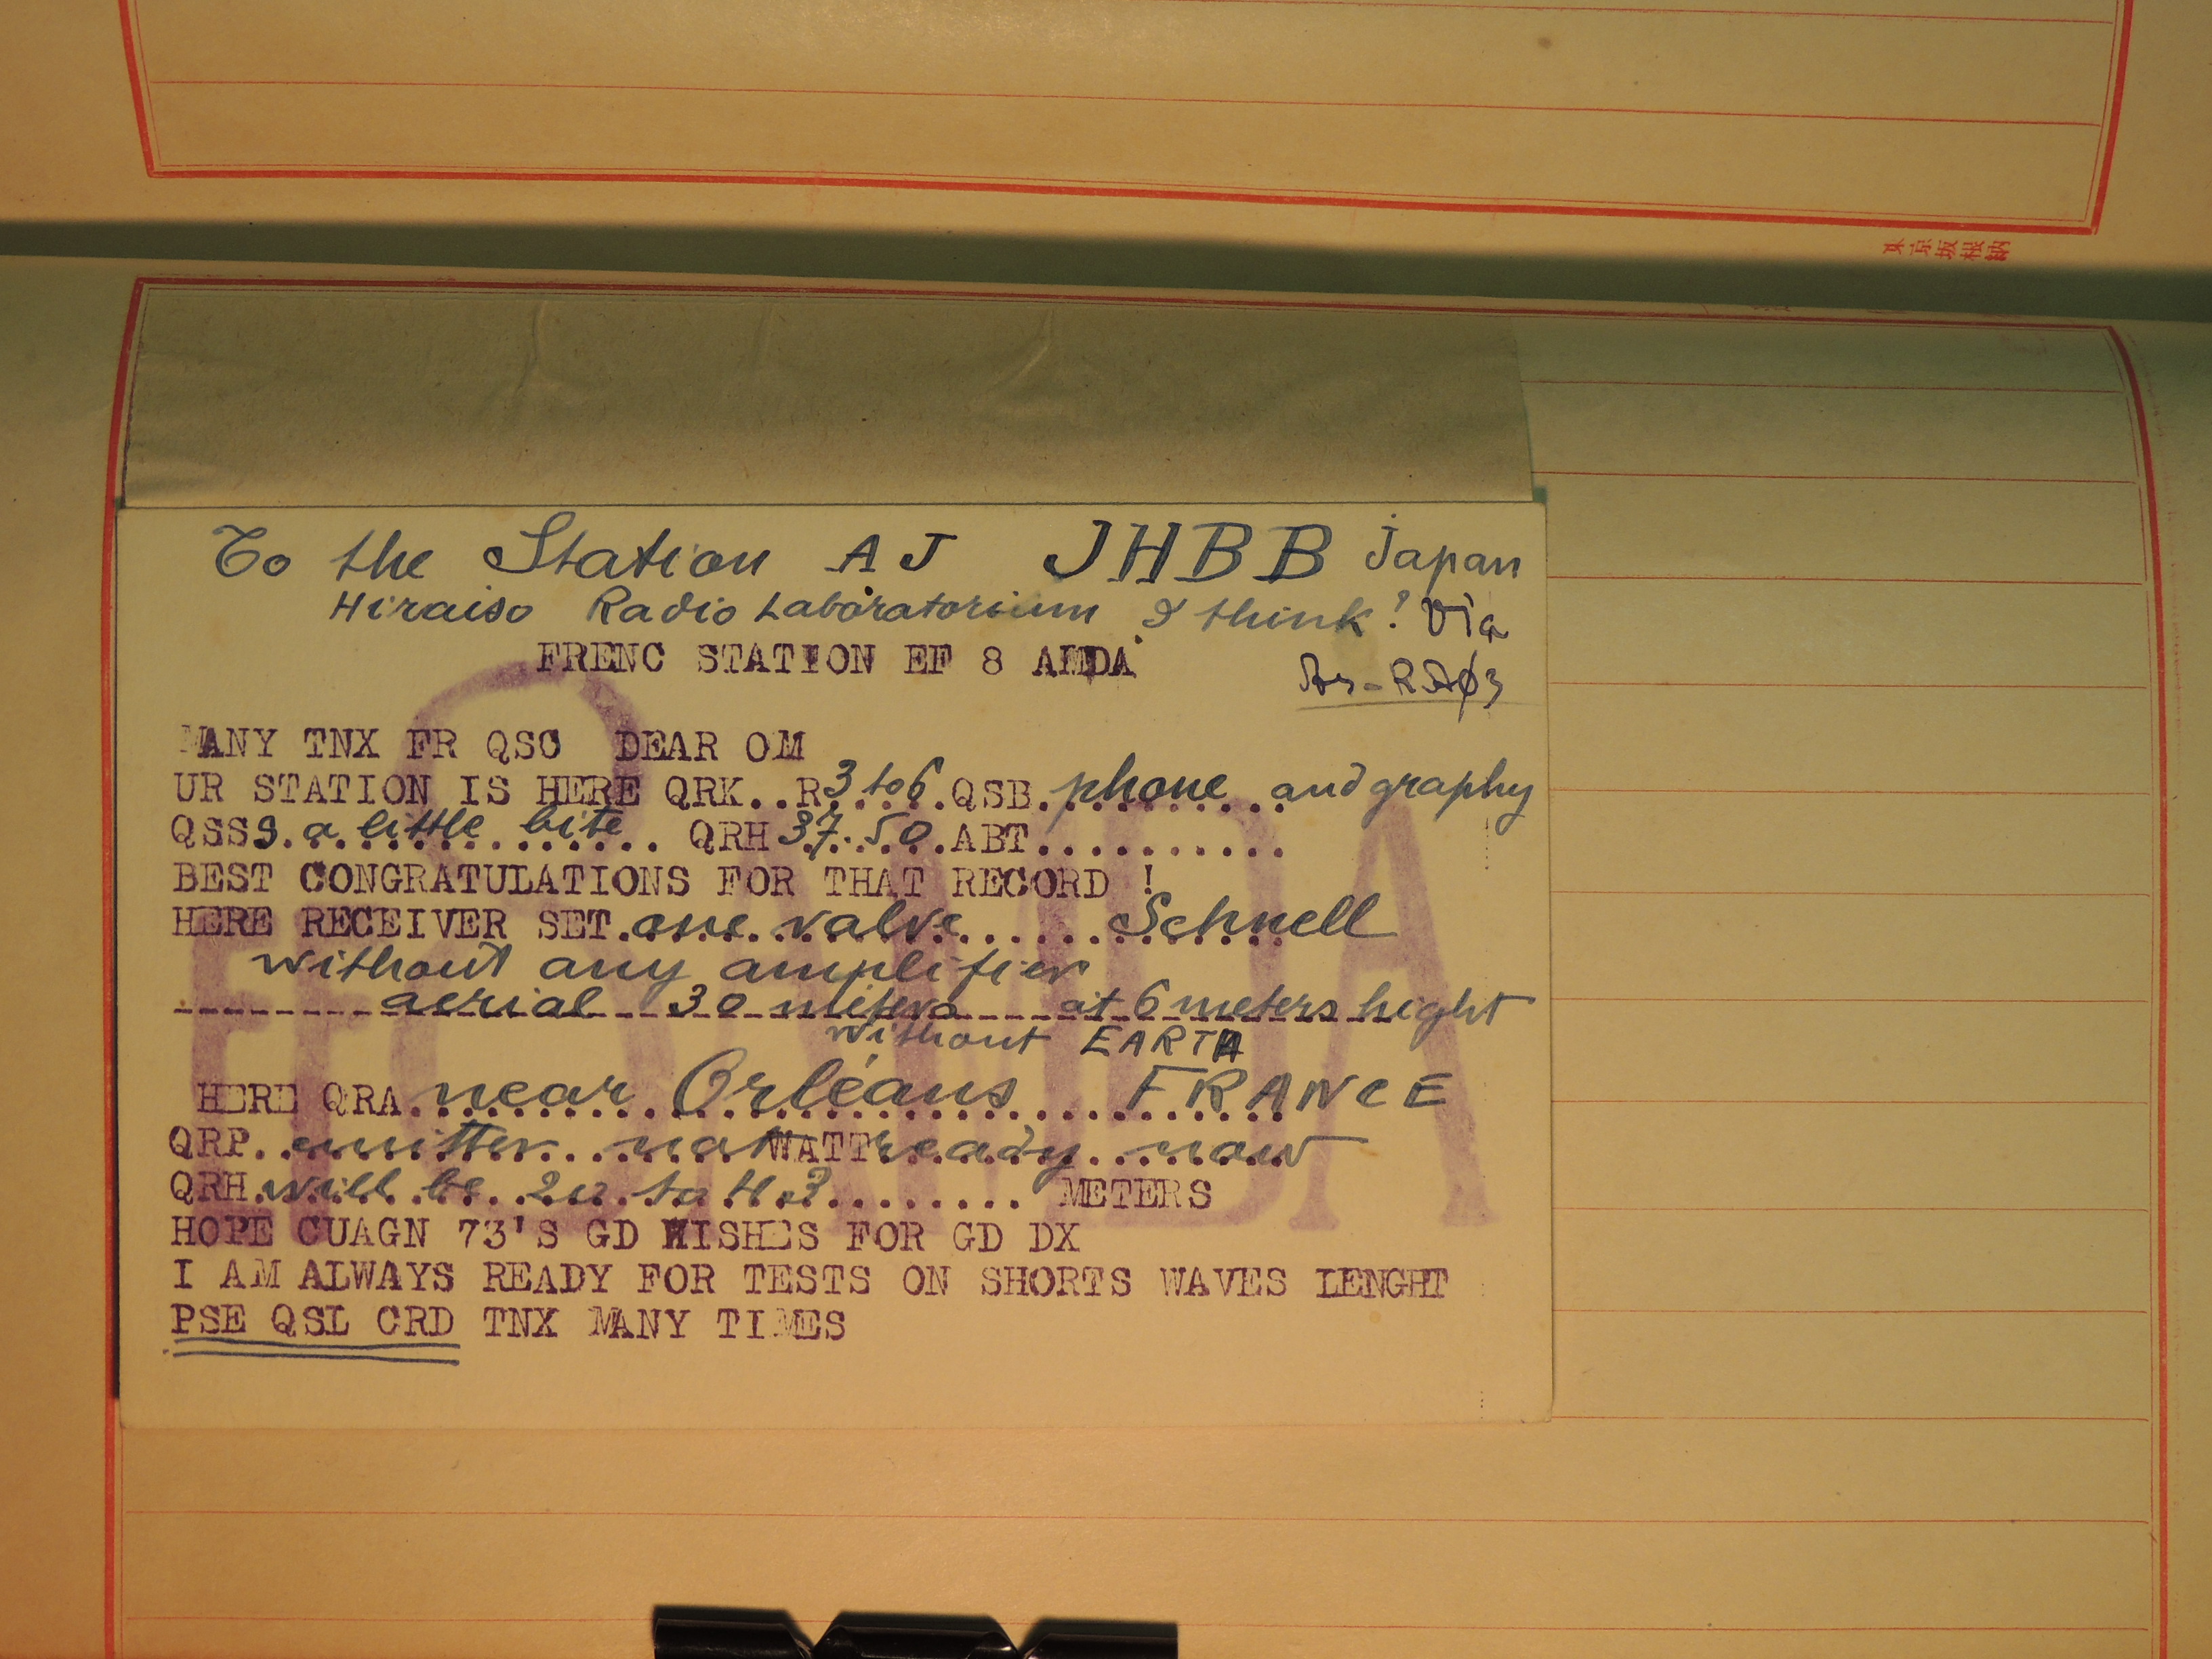 東京坂根納
To the Station AJ JHBB Japan
Hiraiso Radio Laboratorium I think! Via
FRENC STATION EF 8 AMDA
As-RAØ3
MANY TNX FR QSO DEAR OM
UR STATION IS HERE QRK..R3 to 6.QSB.phone and graphy
QSSS.a little bite.. QRH 37.50.ABT..........
BEST CONGRATULATIONS FOR THAT RECORD !
HERE RECEIVER SET.one valve......Schnell
without any amplifier
aerial 30 meters at 6 meters hight
without EARTH
HERE QRA.near Orléans FRANCE
QRP..emitter...not WATT ready..now
QRH.will be 20 to 43........ METERS
HOPE CUAGN 73'S GD WISHES FOR GD DX
I AM ALWAYS READY FOR TESTS ON SHORTS WAVES LENGHT
PSE QSL CRD TNX MANY TIMES
EF 8 AMDA